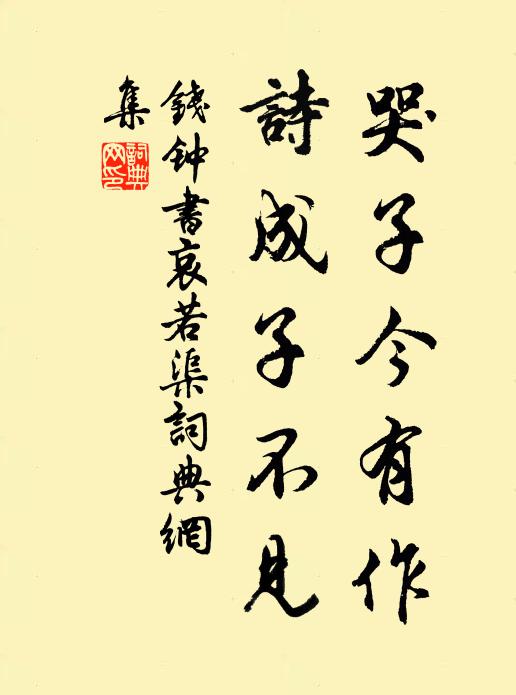 哭子今有作
詩成子不見
錢钟書哀若渠詞典網
集
詞典
网印